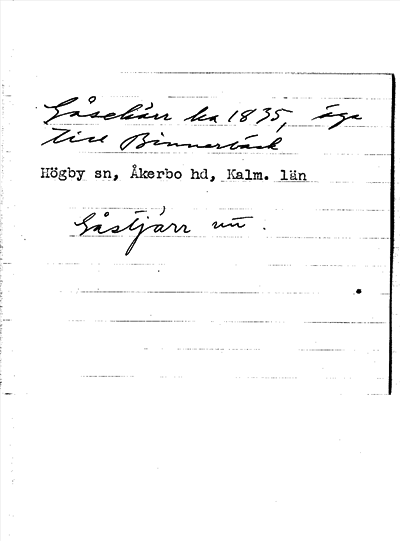 Gåsekärr ha 1835, äga
till Binnerbäck
Högby sn, Åkerbo hd, Kalm. län
Gåstjärr un.